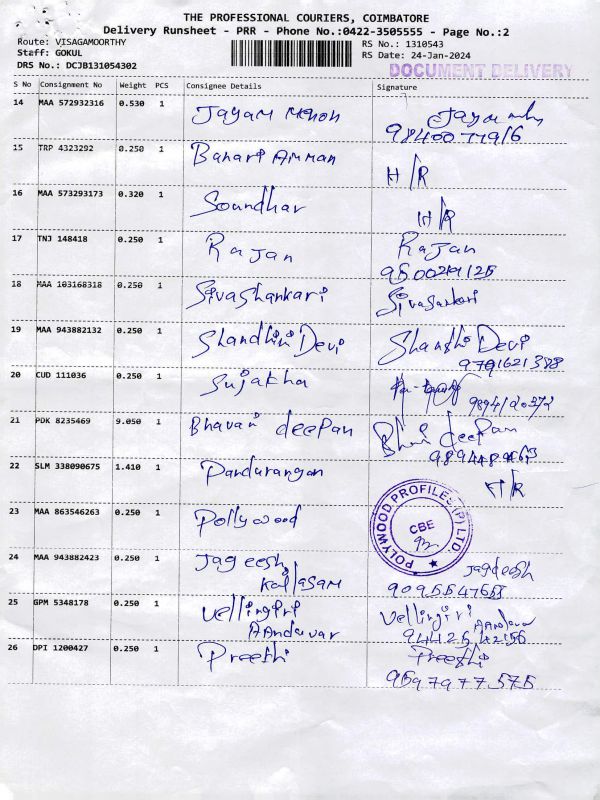 THE PROFESSIONAL COURIERS, COIMBATORE
Delivery Runsheet - PRR - Phone No.:0422-3505555 - Page No.:2
Route: VISAGAMOORTHY RS No.: 1310543
Staff: GOKUL RS Date: 24-Jan-2024
DRS No.: DCJB131054302 DOCUMENT DELIVERY
S No Consignment No Weight PCS Consignee Details Signature
14 MAA 572932316 0.530 1 Jayam Menon
15 TRP 4323292 0.250 1 Banari Amman H/R
16 MAA 573293173 0.320 1 Soundhar H/R
17 TNJ 148418 0.250 1 Rajan Rajan
18 MAA 103168318 0.250 1 Sivashankari Sivasankari
19 MAA 943882132 0.250 1 Shandhini Devi Shanthi Devi
9791621388
20 CUD 111036 0.250 1 Sujatha
21 PDK 8235469 9.050 1 Bhavan deepan
22 SLM 338090675 1.410 1 Pandurangan H/R
23 MAA 863546263 0.250 1 Pollywood
POLYWOOD PROFILES (P) LTD.
CBE
24 MAA 943882423 0.250 1 Jageesh Jagdeesh
Kailasam 9095547658
25 GPM 5348178 0.250 1 Vellingiri Vellingiri
AAndavar AAndavar
9442542156
26 DPI 1200427 0.250 1 Preethi Preethi
9597977575